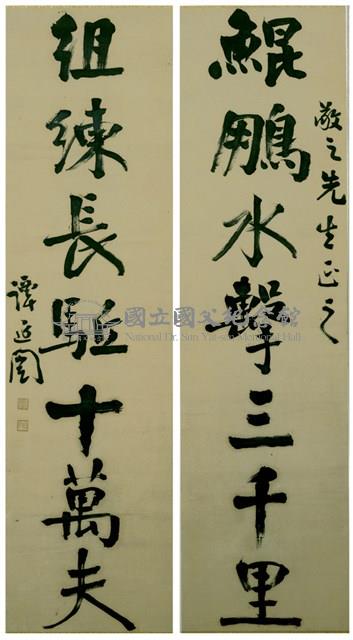 敬之先生正之
鯤鵬水擊三千里
組練長驅十萬夫
譚延闓
國立國父紀念館
National Dr. Sun Yat-sen Memorial Hall